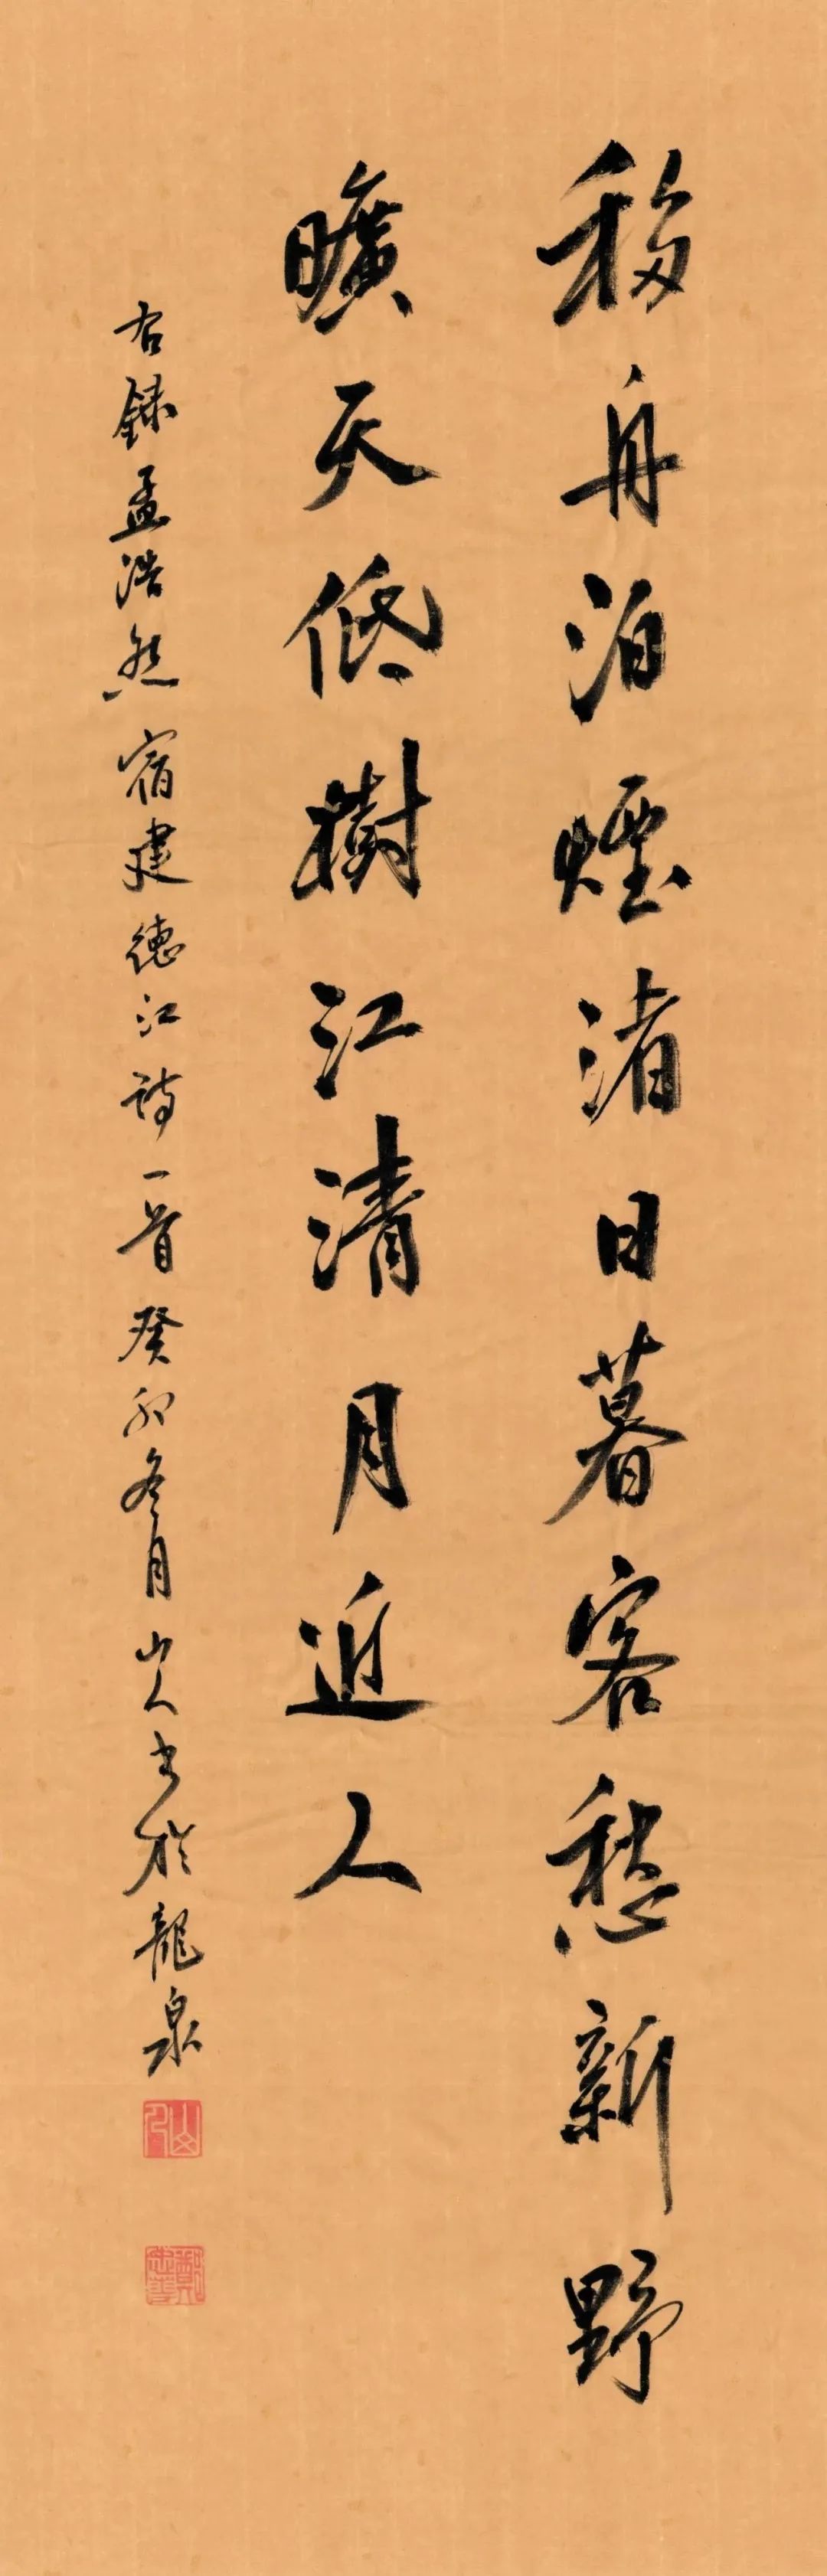 移舟泊煙渚日暮客愁新野
曠天低樹江清月近人
右錄孟浩然宿建德江詩一首癸卯冬月山人書於龍泉